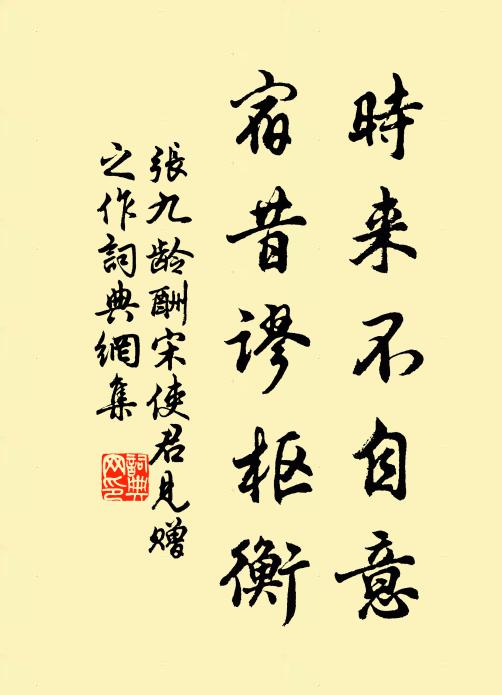 時来不自意
宿昔謬枢衡
張九龄酬宋使君見赠
之作詞典網集
詞典
网印